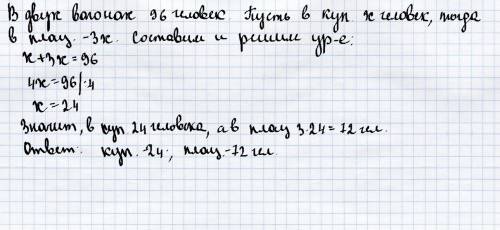 В двух вагонах 96 человек. Пусть в куп x человек, тогда
в плац. -3x. Составим и решим ур-е:
x+3x=96
4x=96|:4
x=24
Значит, в куп. 24 человека, а в плац 3·24=72 чел.
Ответ: куп. -24; плац.-72 чел